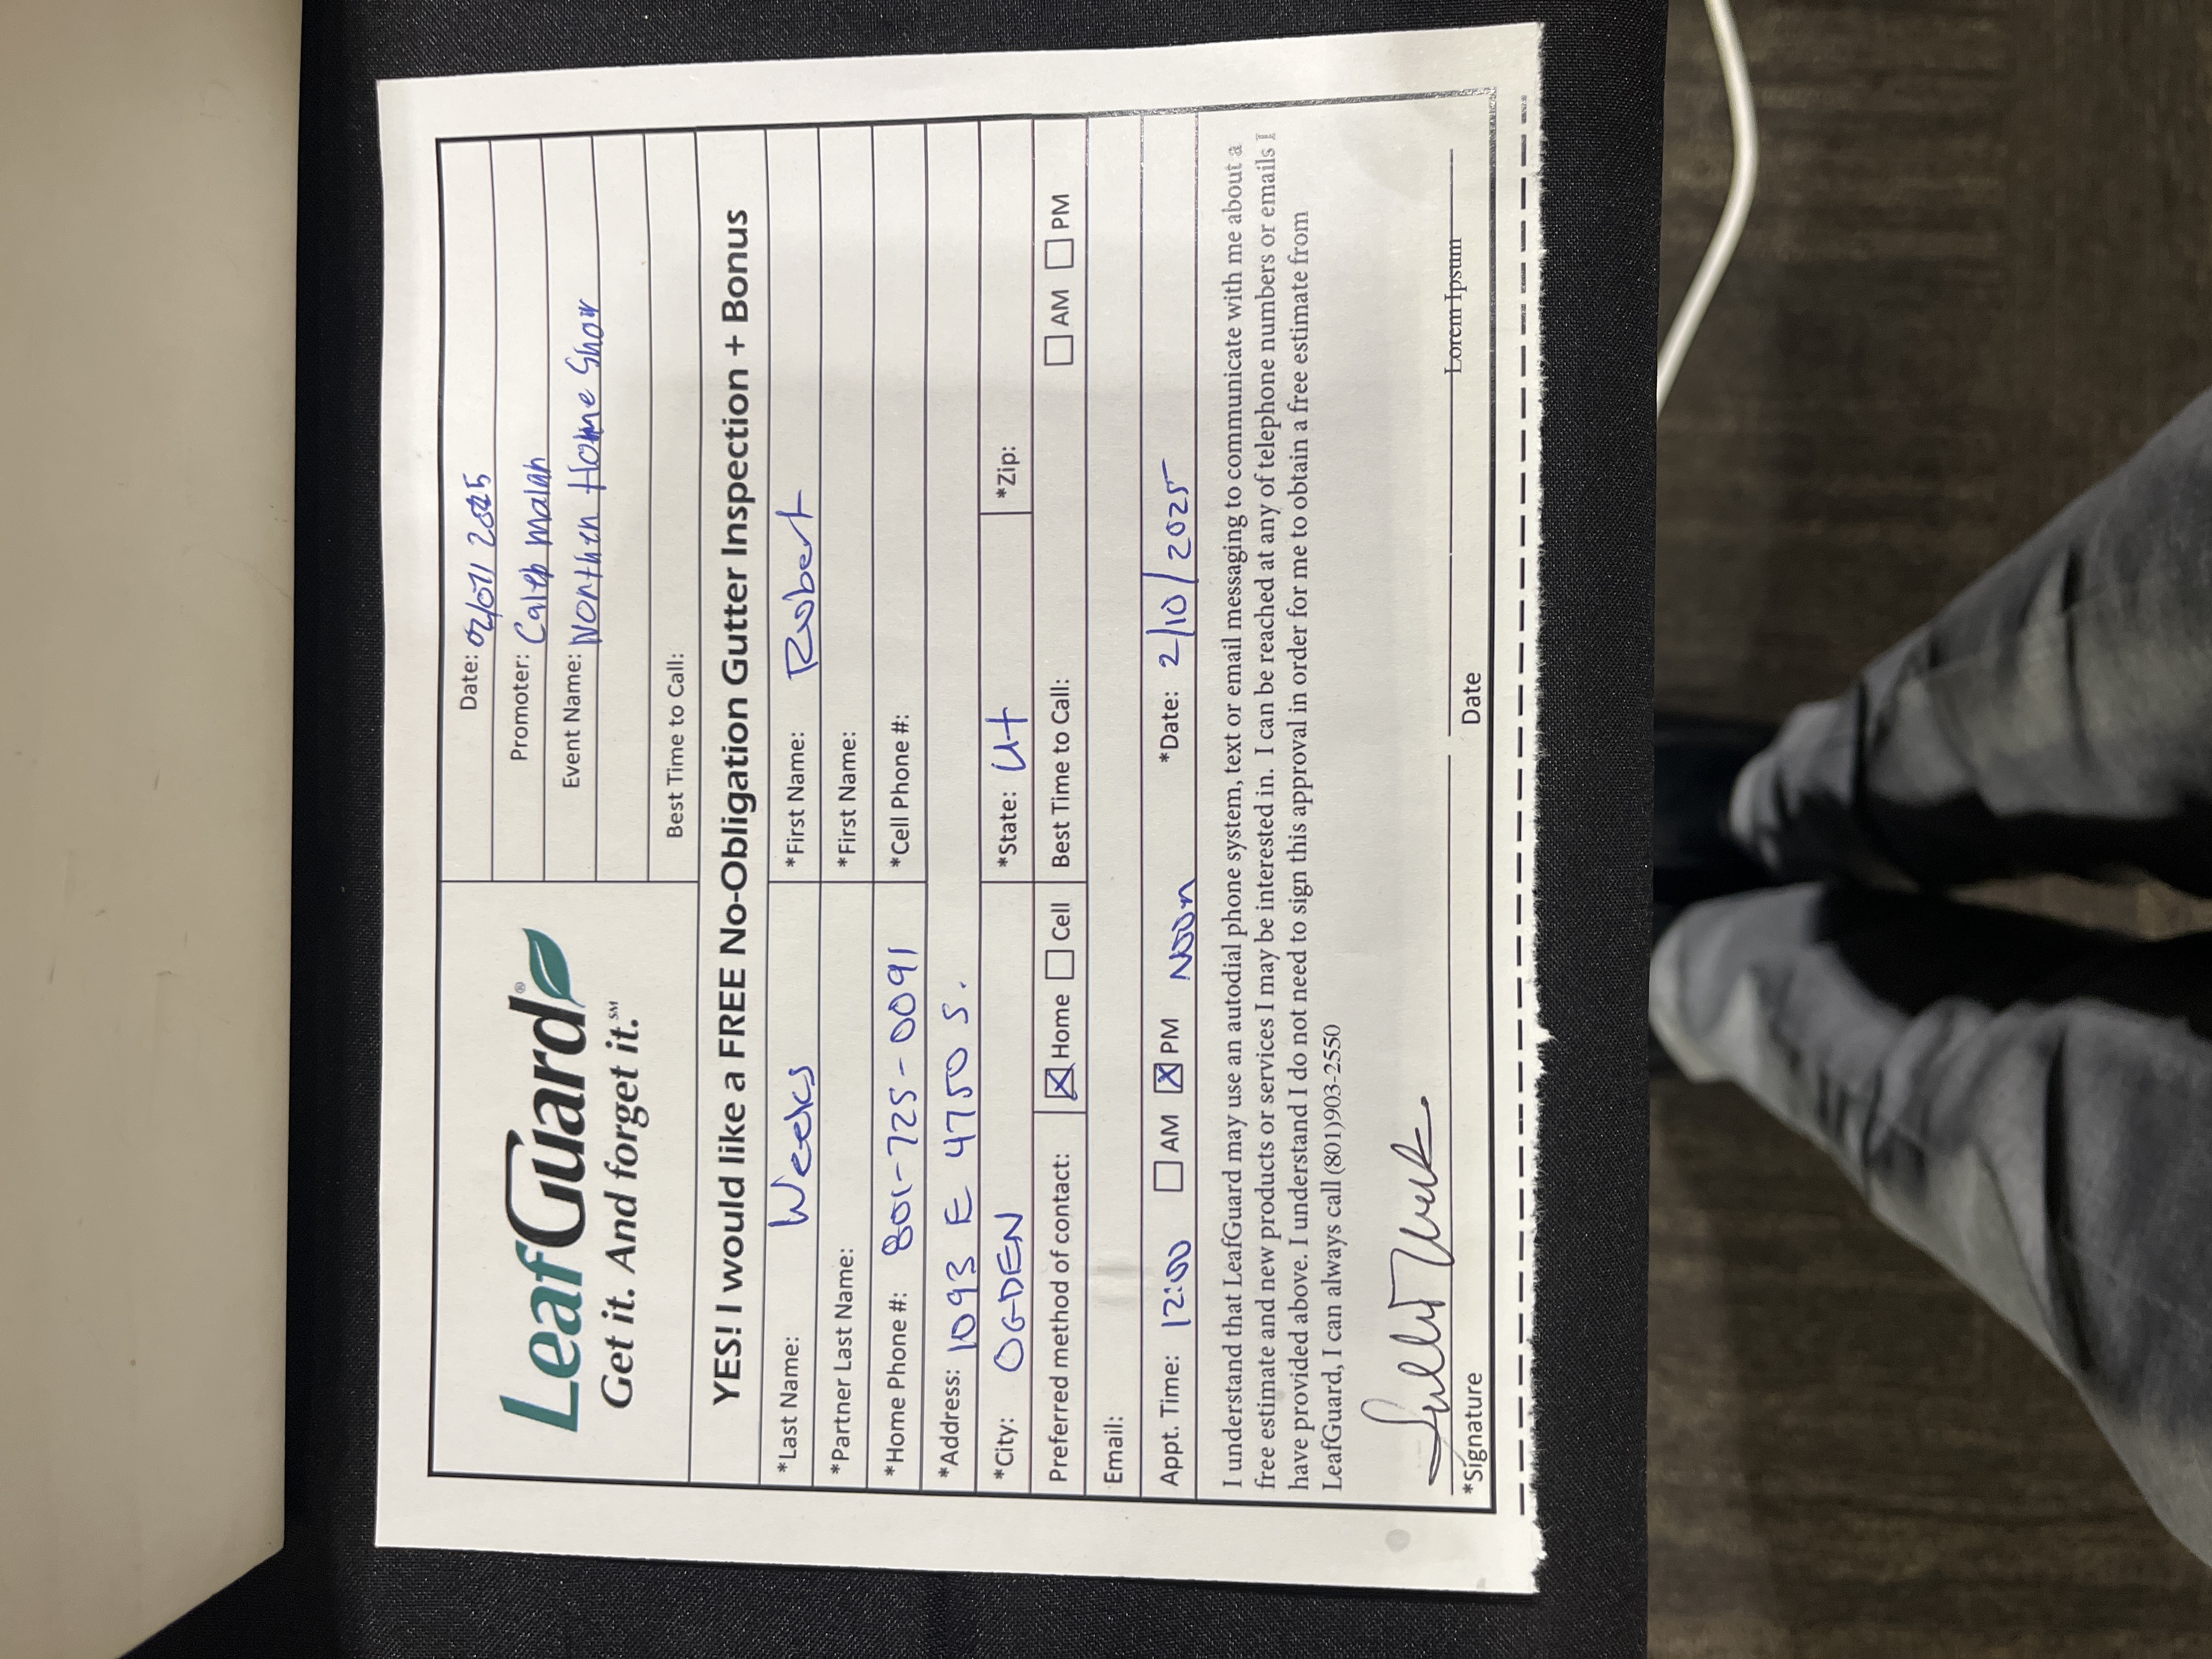 LeafGuard®
Get it. And forget it.℠
Date: 02/07/2025
Promoter: Caleb Malan
Event Name: Northen Home Show
Best Time to Call:
YES! I would like a FREE No-Obligation Gutter Inspection + Bonus
*Last Name: Weeks *First Name: Robert
*Partner Last Name: *First Name:
*Home Phone #: 801-725-0091 *Cell Phone #:
*Address: 1093 E 4750 S.
*City: OGDEN *State: Ut *Zip:
Preferred method of contact: ☒ Home ☐ Cell Best Time to Call: ☐ AM ☐ PM
Email:
Appt. Time: 12:00 ☐ AM ☒ PM Noon *Date: 2/10/2025
I understand that LeafGuard may use an autodial phone system, text or email messaging to communicate with me about a
free estimate and new products or services I may be interested in. I can be reached at any of telephone numbers or emails I
have provided above. I understand I do not need to sign this approval in order for me to obtain a free estimate from
LeafGuard, I can always call (801)903-2550
Lorem Ipsum
*Signature Date